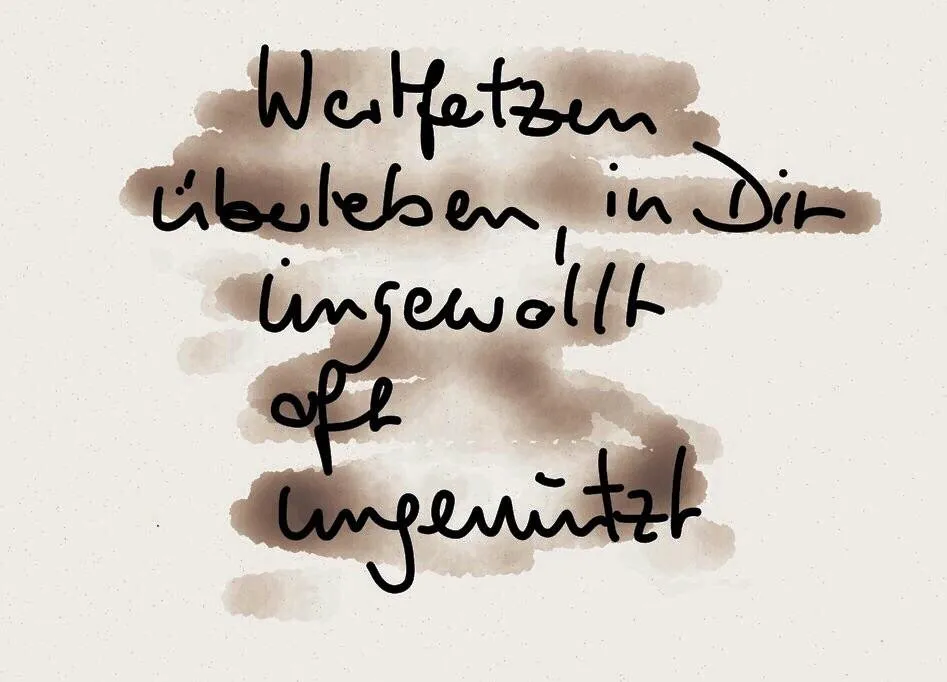 Wortfetzen
überleben, in Dir
ungewollt
oft
ungenützt